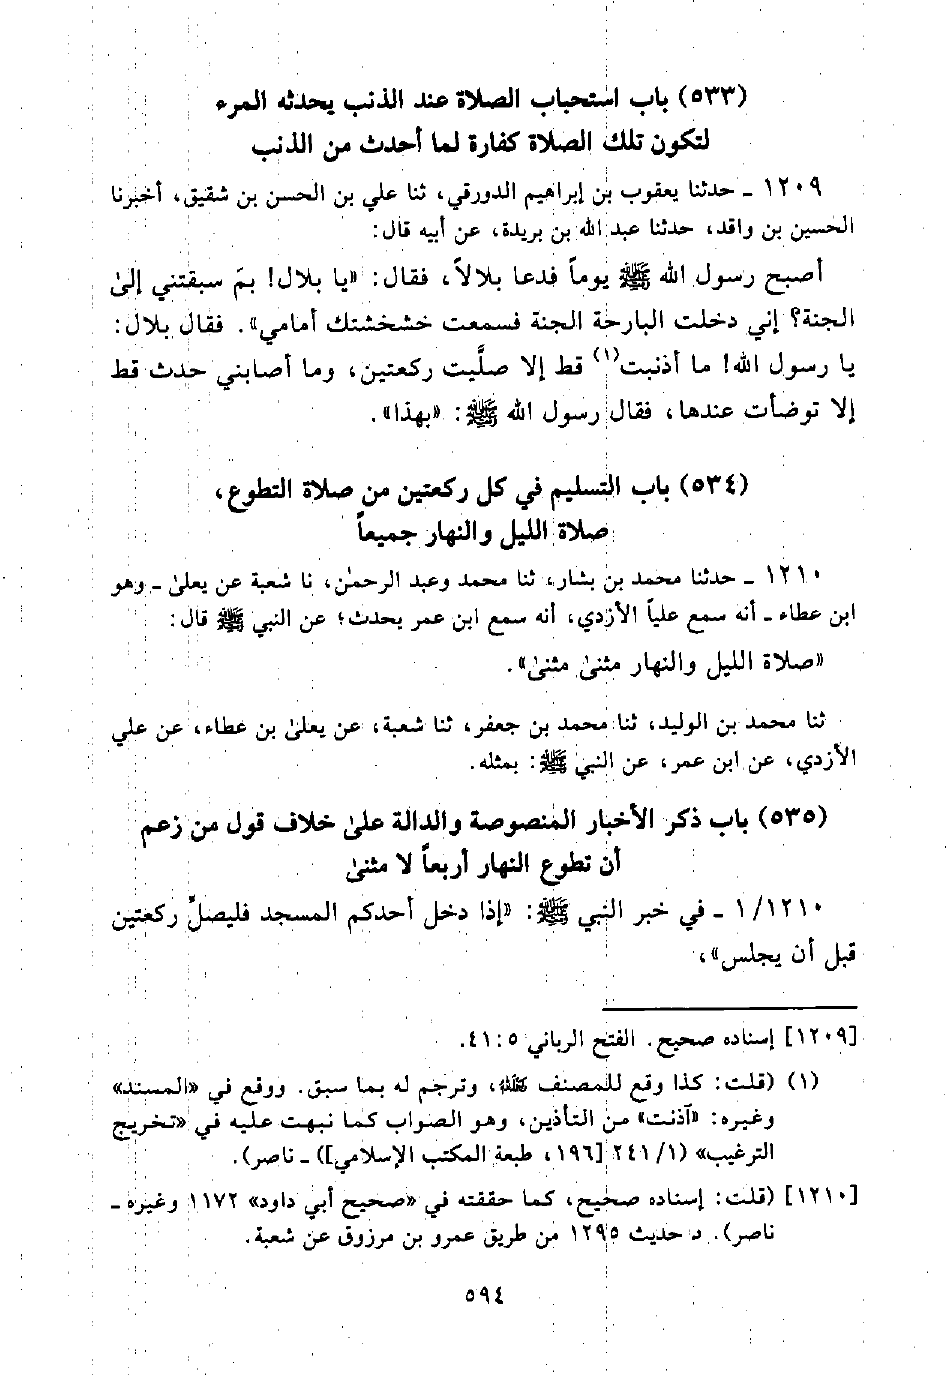 (٥٣٣) باب استحباب الصلاة عند الذنب يحدثه المرء
لتكون تلك الصلاة كفارة لما أحدث من الذنب
١٢٠٩ ـ حدثنا يعقوب بن إبراهيم الدورقي، ثنا علي بن الحسن بن شقيق، أخبرنا
الحسين بن واقد، حدثنا عبد الله بن بريدة، عن أبيه قال:
أصبح رسول الله ﷺ يوماً فدعا بلالاً، فقال: «يا بلال! بمَ سبقتني إلىٰ
الجنة؟ إني دخلت البارحة الجنة فسمعت خشخشتك أمامي». فقال بلال:
يا رسول الله! ما أذنبت(١) قط إلا صلَّيت ركعتين، وما أصابني حدث قط
إلا توضأت عندها، فقال رسول الله ﷺ: «بهذا».
(٥٣٤) باب التسليم في كل ركعتين من صلاة التطوع،
صلاة الليل والنهار جميعاً
١٢١٠ ـ حدثنا محمد بن بشار، ثنا محمد وعبد الرحمٰن، نا شعبة عن يعلىٰ ـ وهو
ابن عطاء ـ أنه سمع علياً الأزدي، أنه سمع ابن عمر يحدث؛ عن النبي ﷺ قال:
«صلاة الليل والنهار مثنىٰ مثنىٰ».
ثنا محمد بن الوليد، ثنا محمد بن جعفر، ثنا شعبة، عن يعلىٰ بن عطاء، عن علي
الأزدي، عن ابن عمر، عن النبي ﷺ: بمثله.
(٥٣٥) باب ذكر الأخبار المنصوصة والدالة علىٰ خلاف قول من زعم
أن تطوع النهار أربعاً لا مثنىٰ
١/١٢١٠ ـ في خبر النبي ﷺ: «إذا دخل أحدكم المسجد فليصلِّ ركعتين
قبل أن يجلس»،
[١٢٠٩] إسناده صحيح. الفتح الرباني ٥: ٤١.
(١) (قلت: كذا وقع للمصنف ﵀، وترجم له بما سبق. ووقع في «المسند»
وغيره: «آذنت» من التأذين، وهو الصواب كما نبهت عليه في «تخريج
الترغيب» (١/ ٢٤١ [١٩٦، طبعة المكتب الإسلامي]) ـ ناصر).
[١٢١٠] (قلت: إسناده صحيح، كما حققته في «صحيح أبي داود» ١١٧٢ وغيره ـ
ناصر). د حديث ١٢٩٥ من طريق عمرو بن مرزوق عن شعبة.
٥٩٤